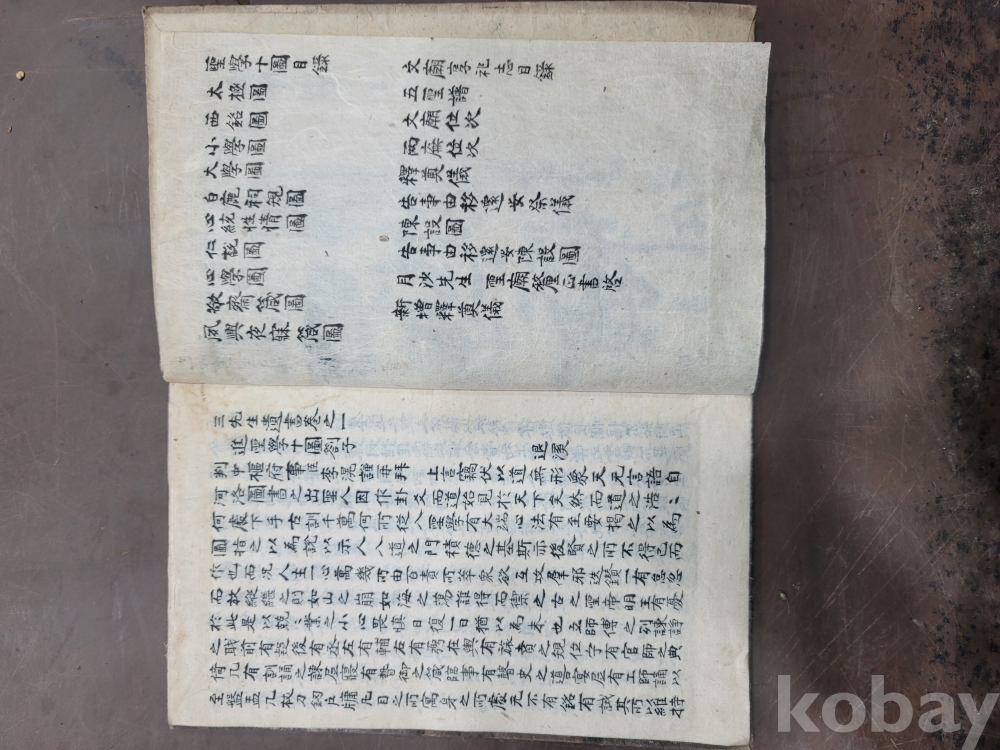 聖學十圖目錄
太極圖
西銘圖
小學圖
大學圖
白鹿洞規圖
心統性情圖
仁說圖
心學圖
敬齋箴圖
夙興夜寐箴圖
文廟享祀志目錄
五聖譜
大廟位次
兩廡位次
釋奠儀
告事由移還安祭儀
陳設圖
告事由移還安陳設圖
月沙先生聖廟釐正書啓
新增釋奠儀
三先生遺書卷之一
進聖學十圖劄子 退溪
判中樞府事臣李滉謹再拜 上言竊伏以道無形象天无言語自
河洛圖書之出聖人因作卦爻而道始見於天下矣然而道之浩〻
何處下手古訓千萬何所從入聖學有大端心法有至要揭之以為
圖指之以為說以示人入道之門積德之基斯亦後賢之所不得已而
作也而况人主一心萬幾所由百責所萃衆欲互攻羣邪迭鑽一有怠忽
而放縱繼之則如山之崩如海之蕩誰得而禦之古之聖帝明王有憂
於此是以兢〻業之小心畏愼日復一日猶以為未也立師傅之列諫諍
之職前有疑後有丞左有輔右有弼在輿有旅賁之規位宁有官師之典
倚几有訓誦之諫居寢有暬御之箴臨事有瞽史之道宴居有工師誦以
至盤盂几杖刀劒戶牖凡目之所寓身之所處无不有銘有誡其所以維持
kobay